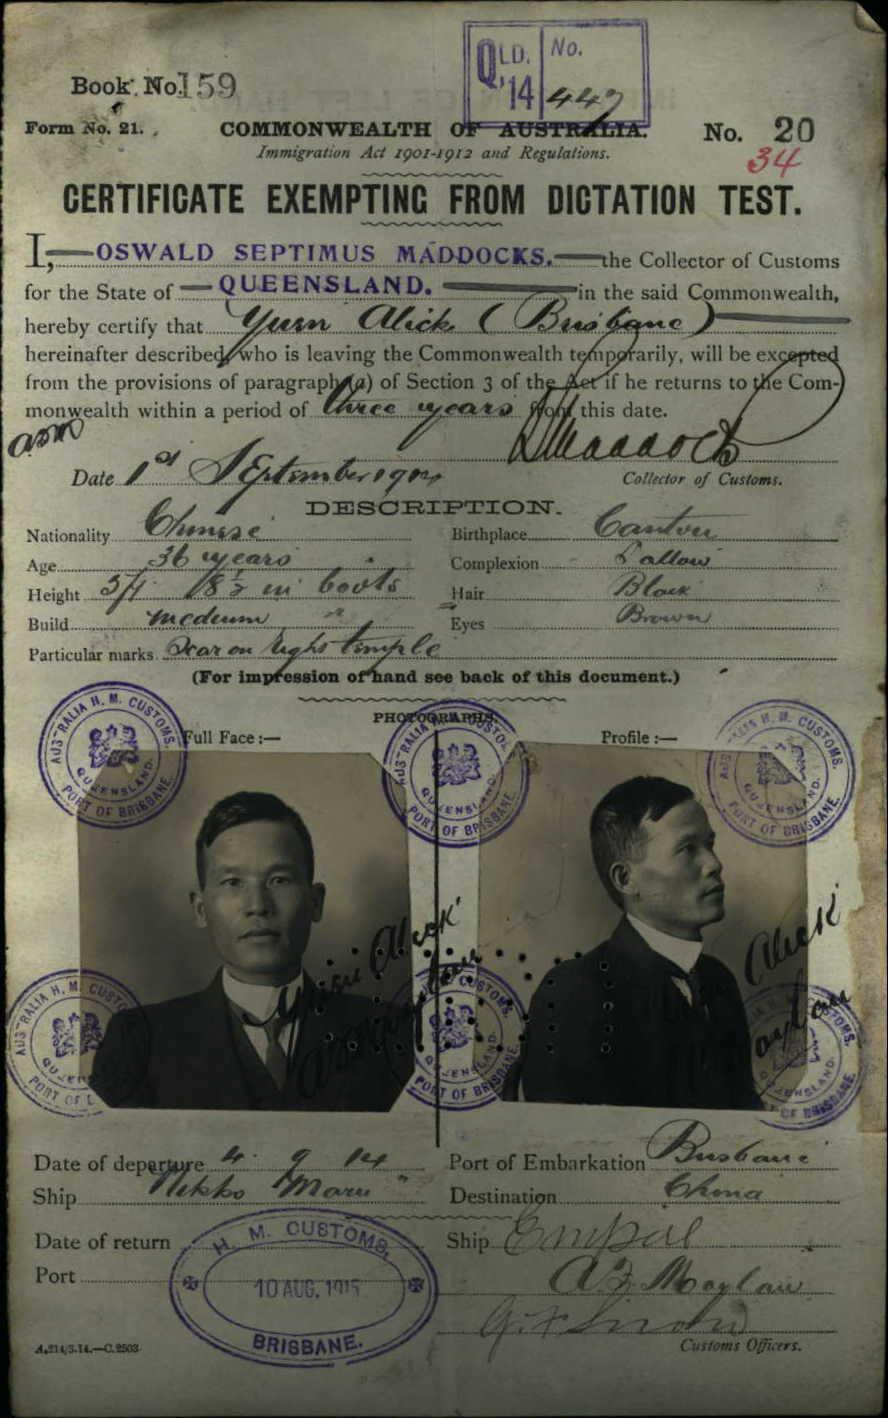 QLD. No.
'14 447
Book No. 159
Form No. 21. COMMONWEALTH OF AUSTRALIA. No. 20
Immigration Act 1901-1912 and Regulations. 34
CERTIFICATE EXEMPTING FROM DICTATION TEST.
I, OSWALD SEPTIMUS MADDOCKS. the Collector of Customs
for the State of QUEENSLAND. in the said Commonwealth,
hereby certify that Yuen Alick (Brisbane)
hereinafter described, who is leaving the Commonwealth temporarily, will be excepted
from the provisions of paragraph (a) of Section 3 of the Act if he returns to the Com-
monwealth within a period of three years from this date.
Date 1st September 1914 Collector of Customs.
DESCRIPTION.
Nationality Chinese Birthplace Canton
Age 36 years Complexion Sallow
Height 5ft 8½ in boots Hair Black
Build medium Eyes Brown
Particular marks Scar on right temple
(For impression of hand see back of this document.)
PHOTOGRAPHS.
Full Face :— Profile :—
AUSTRALIA H. M. CUSTOMS. QUEENSLAND. PORT OF BRISBANE.
AUSTRALIA H. M. CUSTOMS. QUEENSLAND. PORT OF BRISBANE.
AUSTRALIA H. M. CUSTOMS. QUEENSLAND. PORT OF BRISBANE.
Yuen Alick
Alick
AUSTRALIA H. M. CUSTOMS. QUEENSLAND. PORT OF
H. M. CUSTOMS. QUEENSLAND. PORT OF BRISBANE.
CUSTOMS. QUEENSLAND. OF BRISBANE.
Date of departure 4. 9. 14 Port of Embarkation Brisbane
Ship Nikko Maru Destination China
Date of return Ship Empire
Port A. F. Moylan
H. M. CUSTOMS,
10 AUG. 1915
BRISBANE.
A.214/3.14.—C.2503. Customs Officers.